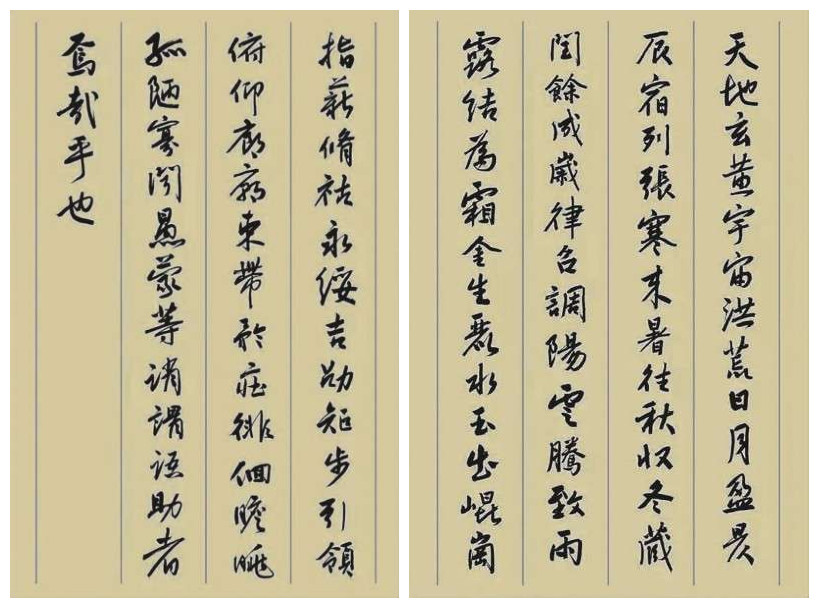 天地玄黄宇宙洪荒日月盈昃
辰宿列張寒来暑往秋収冬蔵
閏餘成歲律召調陽雲騰致雨
露結為霜金生麗水玉出崐崗
指薪脩祜永綏吉劭矩步引領
俯仰廊廟束帶矜莊徘徊瞻眺
孤陋寡聞愚蒙等誚謂語助者
焉哉乎也